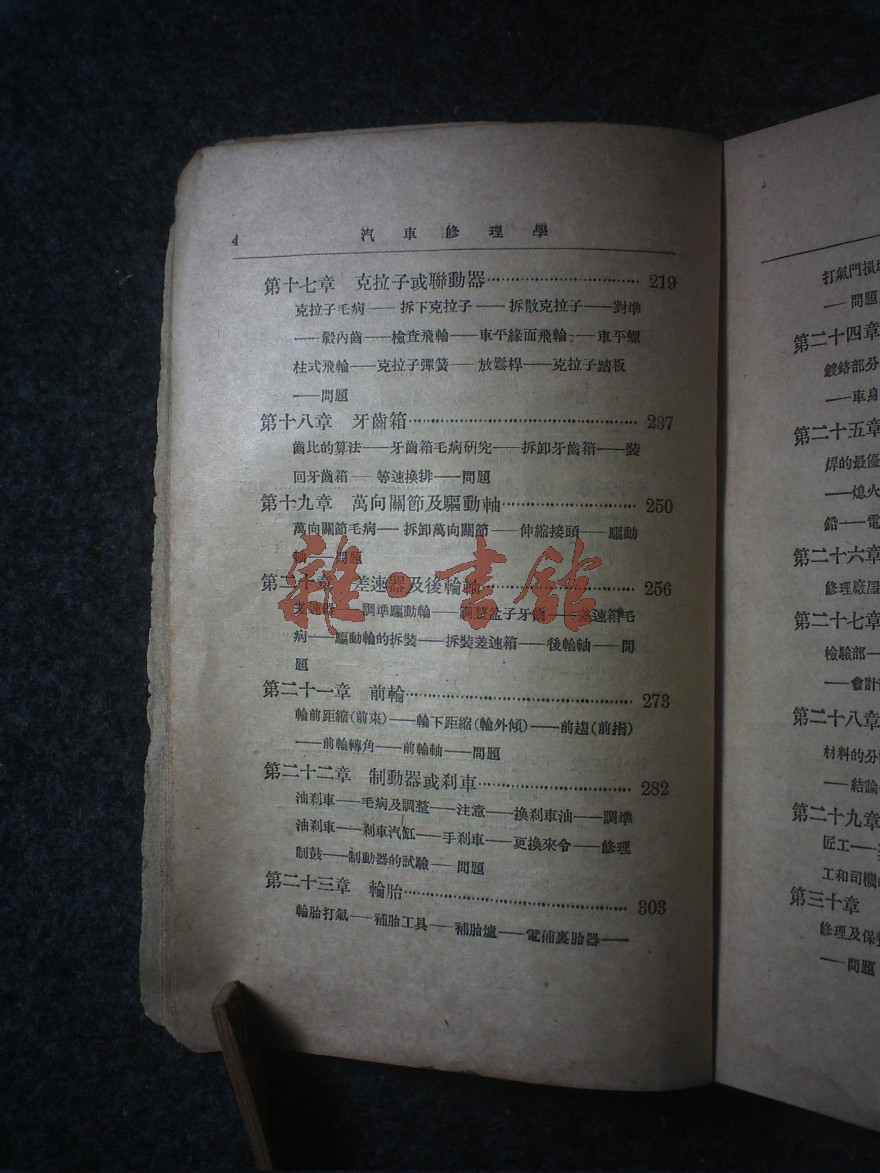 4 汽車修理學
第十七章 克拉子或聯動器…………………………219
克拉子毛病——拆下克拉子——拆散克拉子——對準
——轂內齒——檢查飛輪——車平緣面飛輪——車平螺
柱式飛輪——克拉子彈簧——放鬆桿——克拉子踏板
——問題
第十八章 牙齒箱…………………………237
齒比的算法——牙齒箱毛病研究——拆卸牙齒箱——裝
回牙齒箱——等速換排——問題
第十九章 萬向關節及驅動軸…………………………250
萬向關節毛病——拆卸萬向關節——伸縮接頭——驅動
軸——問題
第二十章 差速器及後輪軸…………………………256
差速器——調準驅動輪——調整盆子牙齒——差速箱毛
病——驅動輪的拆裝——拆裝差速箱——後輪軸——問
題
第二十一章 前輪…………………………273
輪前距縮(前束)——輪下距縮(輪外傾)——前趨(前指)
——前輪轉角——前輪軸——問題
第二十二章 制動器或刹車…………………………282
油刹車——毛病及調整——注意——換刹車油——調準
油刹車——刹車汽缸——手刹車——更換來令——修理
制鼓——制動器的試驗——問題
第二十三章 輪胎…………………………303
輪胎打氣——補胎工具——補胎爐——電補裏胎器——
雜·書館
打氣門損
——問題
第二十四章
鍍鉻部分
——車身
第二十五章
焊的最優
——熄火
鉛——電
第二十六章
修理廠屋
第二十七章
檢驗部——
——會計
第二十八章
材料的分
——結論
第二十九章
匠工——
工和司機
第三十章
修理及保
——問題